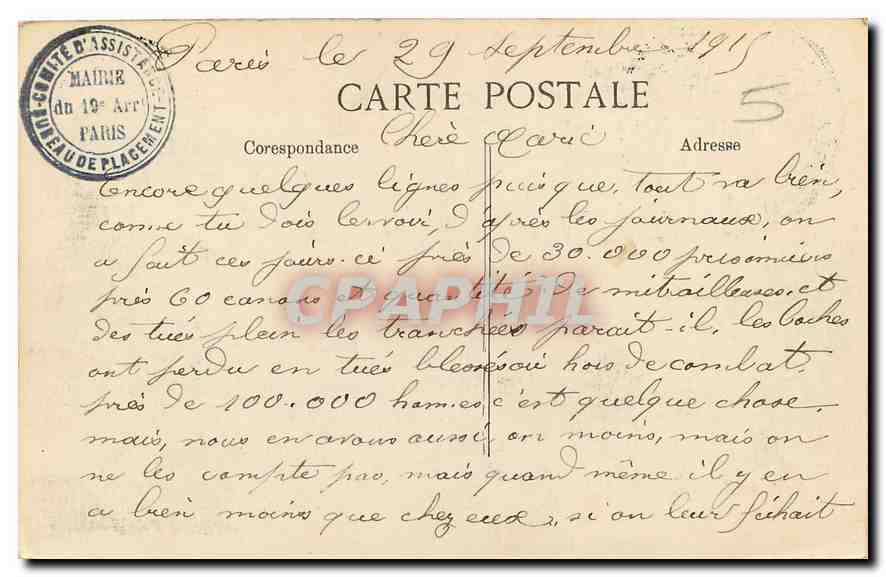 COMITÉ D'ASSISTANCE
MAIRIE
du 19e Arrt
PARIS
BUREAU DE PLACEMENT
Paris le 29 Septembre 1915
CARTE POSTALE
5
Corespondance
Chere Marie
Adresse
Encore quelques lignes puisque, tout va bien,
comme tu dois le voir, d'après les journaux, on
a fait ces jours-ci près de 30.000 prisonniers
près 60 canons et quantités de mitrailleuses, et
des tués plein les tranchées parait-il, les boches
ont perdu en tués blessés ou hors de combat
près de 100.000 hommes c'est quelque chose,
mais, nous en avons aussi on moins, mais on
ne les compte pas, mais quand même il y en
a bien moins que chez eux, si on leur
CPAPHIL